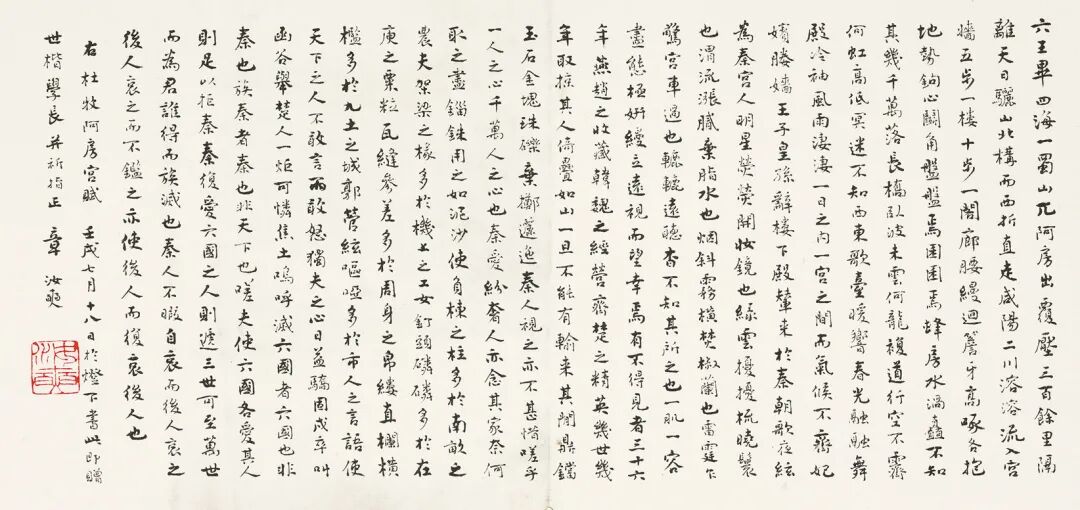 六王畢四海一蜀山兀阿房出覆壓三百餘里隔
離天日驪山北構而西折直走咸陽二川溶溶流入宮
牆五步一樓十步一閣廊腰縵迴簷牙高啄各抱
地勢鉤心鬭角盤盤焉囷囷焉蜂房水渦矗不知
其幾千萬落長橋臥波未雲何龍複道行空不霽
何虹高低冥迷不知西東歌臺暖響春光融融舞
殿冷袖風雨淒淒一日之內一宮之間而氣候不齊妃
嬪媵嬙王子皇孫辭樓下殿輦來於秦朝歌夜絃
為秦宮人明星熒熒開妝鏡也綠雲擾擾梳曉鬟
也渭流漲膩棄脂水也烟斜霧橫焚椒蘭也雷霆乍
驚宮車過也轆轆遠聽杳不知其所之也一肌一容
盡態極妍縵立遠視而望幸焉有不得見者三十六
年燕趙之收藏韓魏之經營齊楚之精英幾世幾
年取掠其人倚疊如山一旦不能有輸來其間鼎鐺
玉石金塊珠礫棄擲邐迤秦人視之亦不甚惜嗟乎
一人之心千萬人之心也秦愛紛奢人亦念其家奈何
取之盡錙銖用之如泥沙使負棟之柱多於南畝之
農夫架梁之椽多於機上之工女釘頭磷磷多於在
庾之粟粒瓦縫參差多於周身之帛縷直欄橫
檻多於九土之城郭管絃嘔啞多於市人之言語使
天下之人不敢言而敢怒獨夫之心日益驕固戍卒叫
函谷舉楚人一炬可憐焦土嗚呼滅六國者六國也非
秦也族秦者秦也非天下也嗟夫使六國各愛其人
則足以拒秦秦復愛六國之人則遞三世可至萬世
而為君誰得而族滅也秦人不暇自哀而後人哀之
後人哀之而不鑑之亦使後人而復哀後人也
右杜牧阿房宮賦 壬戌七月十八日於燈下書此即贈
世楷學長并祈指正 章汝奭